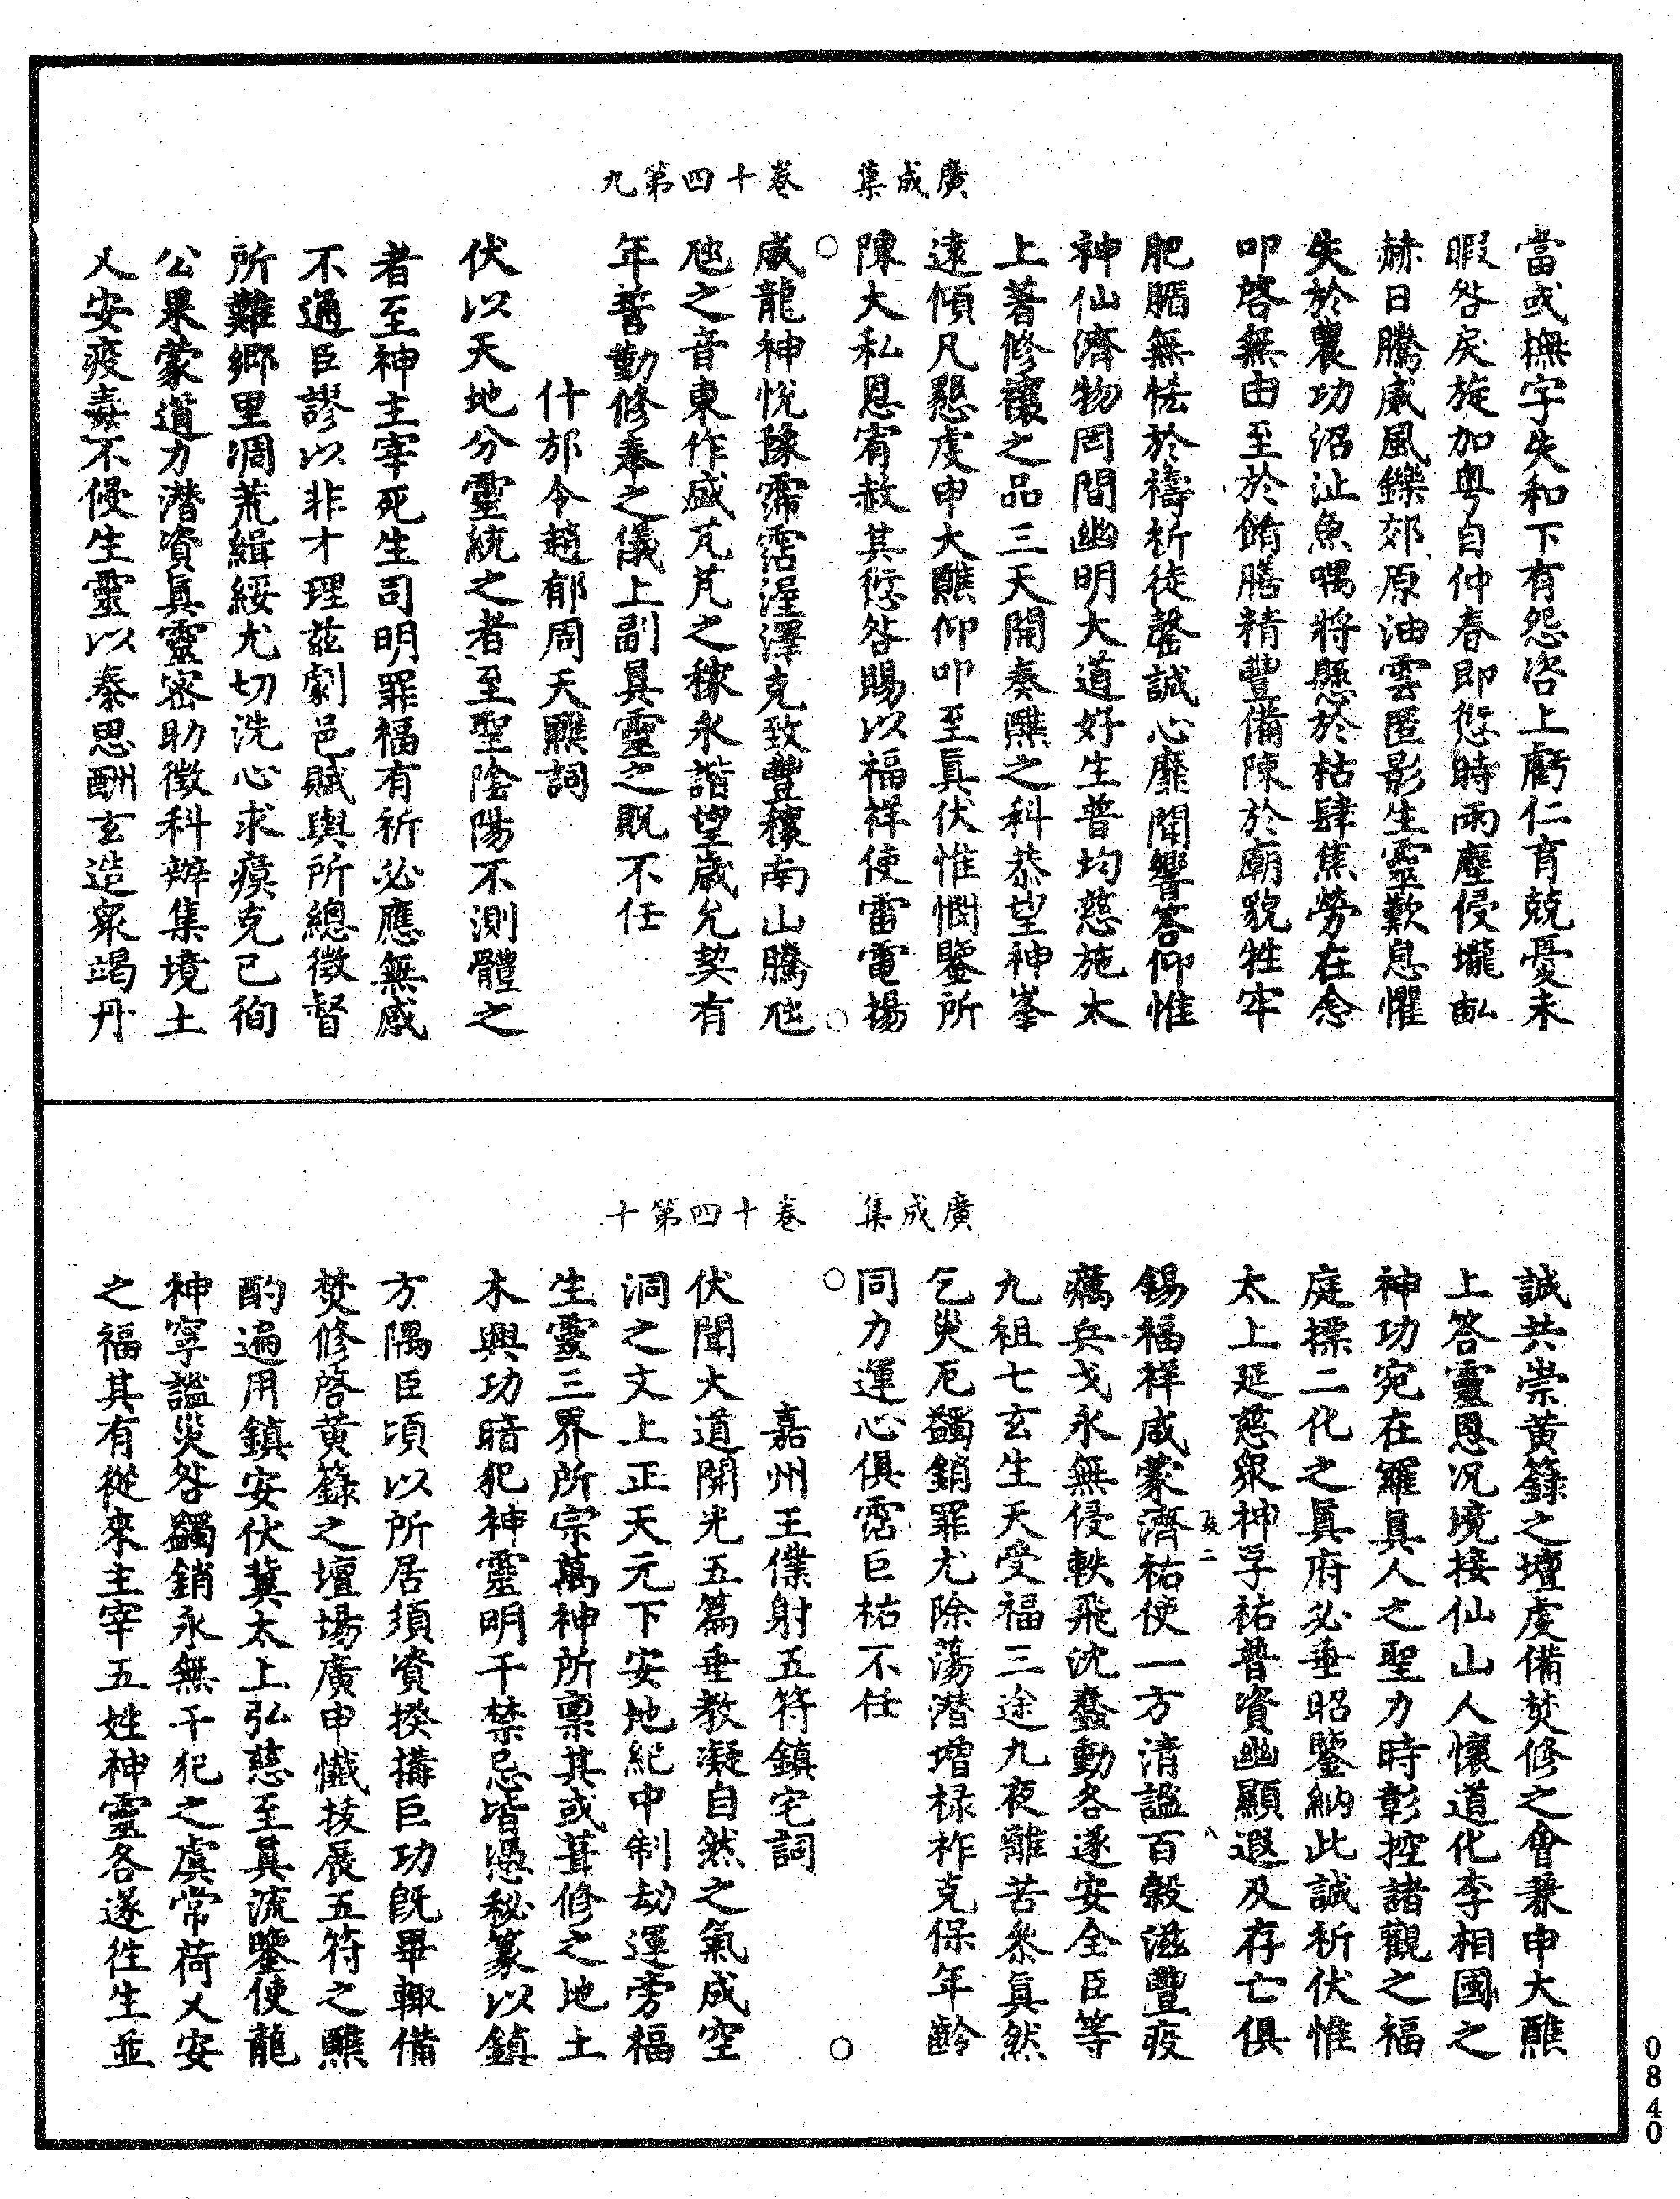 廣成集　卷十四第九
當或撫字失和下有怨咨上虧仁育兢憂未
暇咎戾旋加粤自仲春即愆時雨塵侵壠畝
赫日騰威風鑠郊原油雲匿影生靈歎息懼
失於農功沼沚魚喁將懸於枯肆焦勞在念
叩啓無由至於餚膳精豐備陳於廟貌牲牢
肥腯無恡於禱祈徒罄誠心靡聞響答仰惟
神仙濟物罔間幽明大道好生普均慈施太
上著修禳之品三天開奏醮之科恭望神峯
遠傾凡懇虔申大醮仰叩至眞伏惟憫鑒所
陳大私恩宥赦其愆咎賜以福祥使雷電揚
○　○
威龍神悅豫霈霑渥澤克致豐穰南山騰
之音東作盛芃芃之稼永諧望歲允契有
年誓勤修奉之儀上副眞靈之貺不任
什邡令趙郁周天醮詞
伏以天地分靈統之者至聖陰陽不測體之
者至神主宰死生司明罪福有祈必應無感
不通臣謬以非才理茲劇邑賦輿所總徵督
所難鄉里凋荒緝綏尤切洗心求瘼克己徇
公果蒙道力潛資眞靈密助徵科辦集境土
乂安疫毒不侵生靈以泰思酬玄造衆竭丹
廣成集　卷十四第十
誠共崇黃籙之壇虔備焚修之會兼申大醮
上答靈恩況境接仙山人懷道化李相國之
神功宛在羅眞人之聖力時彰控諸觀之福
庭㩮二化之眞府必垂昭鑒納此誠祈伏惟
太上延慈衆神孚祐普資幽顯遐及存亡俱
錫福祥咸蒙濟祐使一方清謐百穀滋豐疫
癘兵戈永無侵軼飛沈蠢動各遂安全臣等
九祖七玄生天受福三途九夜離苦叅眞然
乞災厄蠲銷罪尤除蕩潜增祿祚克保年齡
同力運心俱霑巨祐不任
○　○
嘉州王僕射五符鎮宅詞
伏聞大道開光五篇垂教凝自然之氣成空
洞之文上正天元下安地紀中制劫運旁福
生靈三界所宗萬神所稟其或葺修之地土
木興功暗犯神靈明干禁忌皆憑秘篆以鎮
方隅臣頃以所居須資揆搆巨功旣畢輒備
焚修啓黃籙之壇場廣申懺技展五符之醮
酌遍用鎮安伏冀太上弘慈至眞流鑒使龍
神寧謐災咎蠲銷永無干犯之虞常荷乂安
之福其有從來主宰五姓神靈各遂徃生並
0840